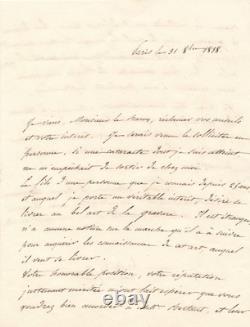 Paris le 31 8bre 1818
Je viens, Monsieur le Baron, réclamer vos conseils
et votre intérêt. Je serais venu le solliciter en
personne, si une dont je suis atteint
ne m'empêchait de sortir de chez moi.
Le fils d'une personne que je connais depuis
et auquel je porte un véritable intérêt, désire se
livrer au bel art de la gravure. Il est étranger
n'a aucune notion sur la marche qu'il a à suivre
pour acquérir les connaissances de cet art auquel
il veut se livrer.
Votre honorable position, votre réputation
justement méritée font espérer que vous
voudrez bien et leur